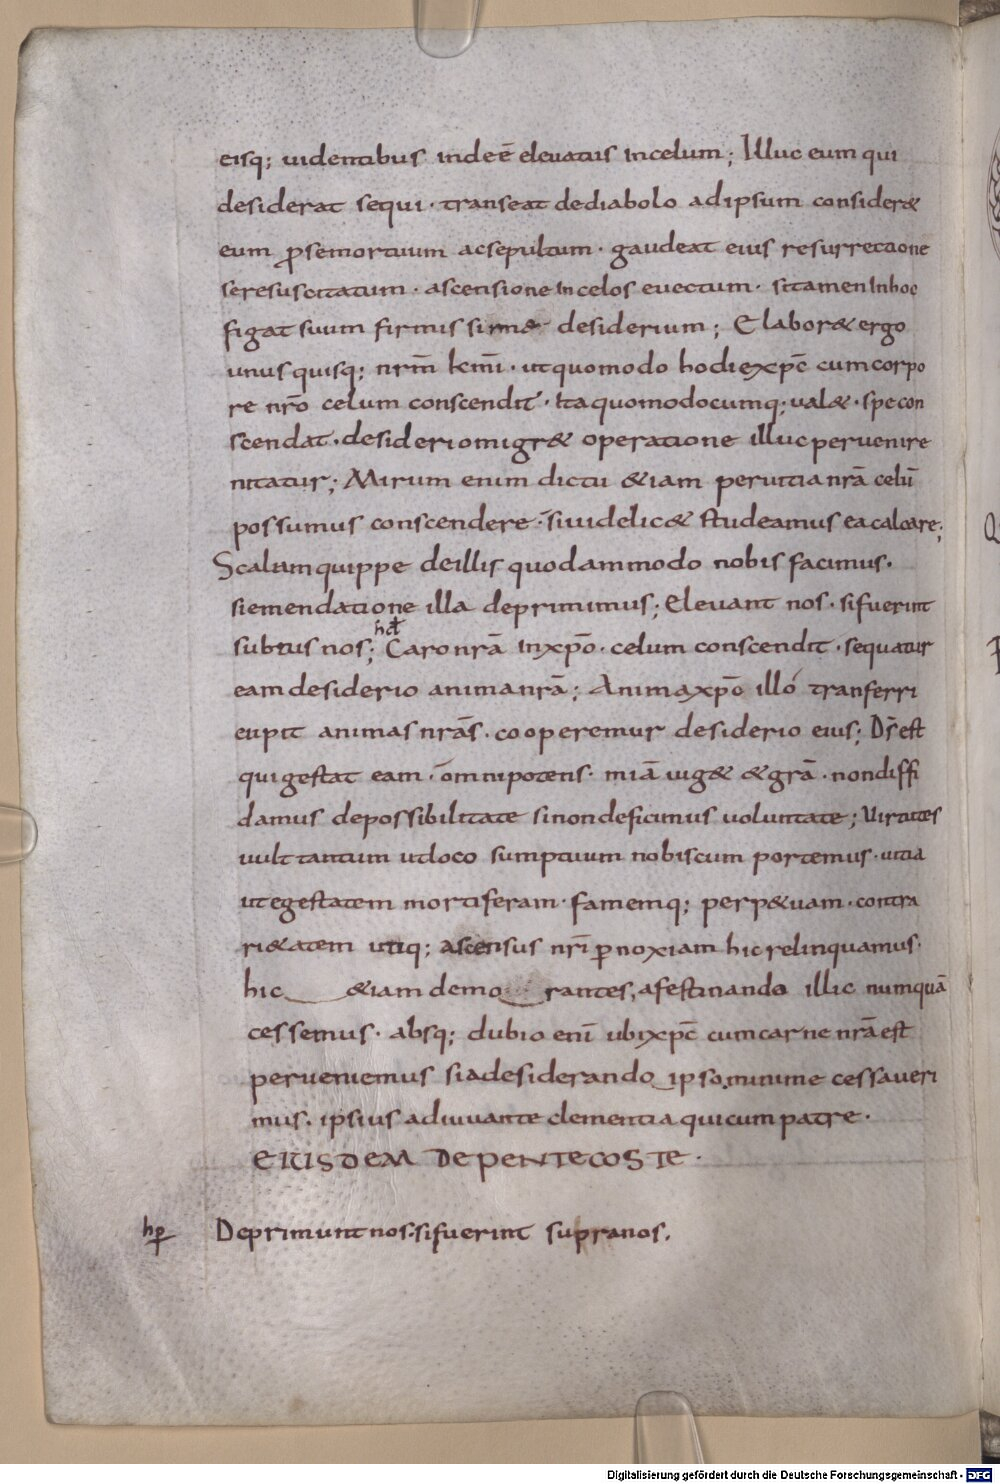 eisq; uidentibus inde ē eleuatus incelum; Illuc eum qui
desiderat sequi · transeat dediabolo adipsum consider&
eum ꝓsemortuum acsepultum · gaudeat eius resurrectione
seresuscitatum · ascensione incelos euectum · sitamen Inhoc
figat suum firmissim& desiderium; Elabor& ergo
unus quisq; nr̄m kmi · utquomodo hodie xp̄c cumcorpo
re nr̄o celum conscendit · itaquomodocumq; ual& · specon
scendat · desideriomigr& operatione illucperuenire
nitatur; Mirum enim dictu &iam peruitia nr̄a celū
possumus conscendere · siuidelic& studeamus eacalcare;
Scalam quippe deillis quodammodo nobis facimus ·
siemendatione illa deprimimus; Eleuant nos · sifuerint
hd
subtus nos; Caro nr̄a inxp̄o · celum conscendit · sequatur
eam desiderio anima nr̄a; Anima xp̄o illo tranferri
cupit animas nr̄as · cooperemur desiderio eius; Ds̄ est
qui gestat eam · omnipotens · miā uig& &grā · nondiffi
damus depossibilitate sinondeficimus uoluntate; Uirtutes
uult tantum utloco sumptuum nobiscum portemus · uitia
utegestatem mortiferam · famemq; perp&uam · contra
ri&atem utiq; ascensus nr̄i ꝑnoxiam hic relinquamus ·
hic &iam demorantes, afestinando illic numquā
cessemus · absq; dubio enī ubi xp̄c cumcarne nr̄a est
perueniemus siadesiderando ipso minime cessaueri
mus · ipsius adiuuante clementia qui cum patre ·
EIUSDEM DE PENTECOSTE ·
hꝑ Deprimunt nos · sifuerint supra nos ·
Digitalisierung gefördert durch die Deutsche Forschungsgemeinschaft - DFG